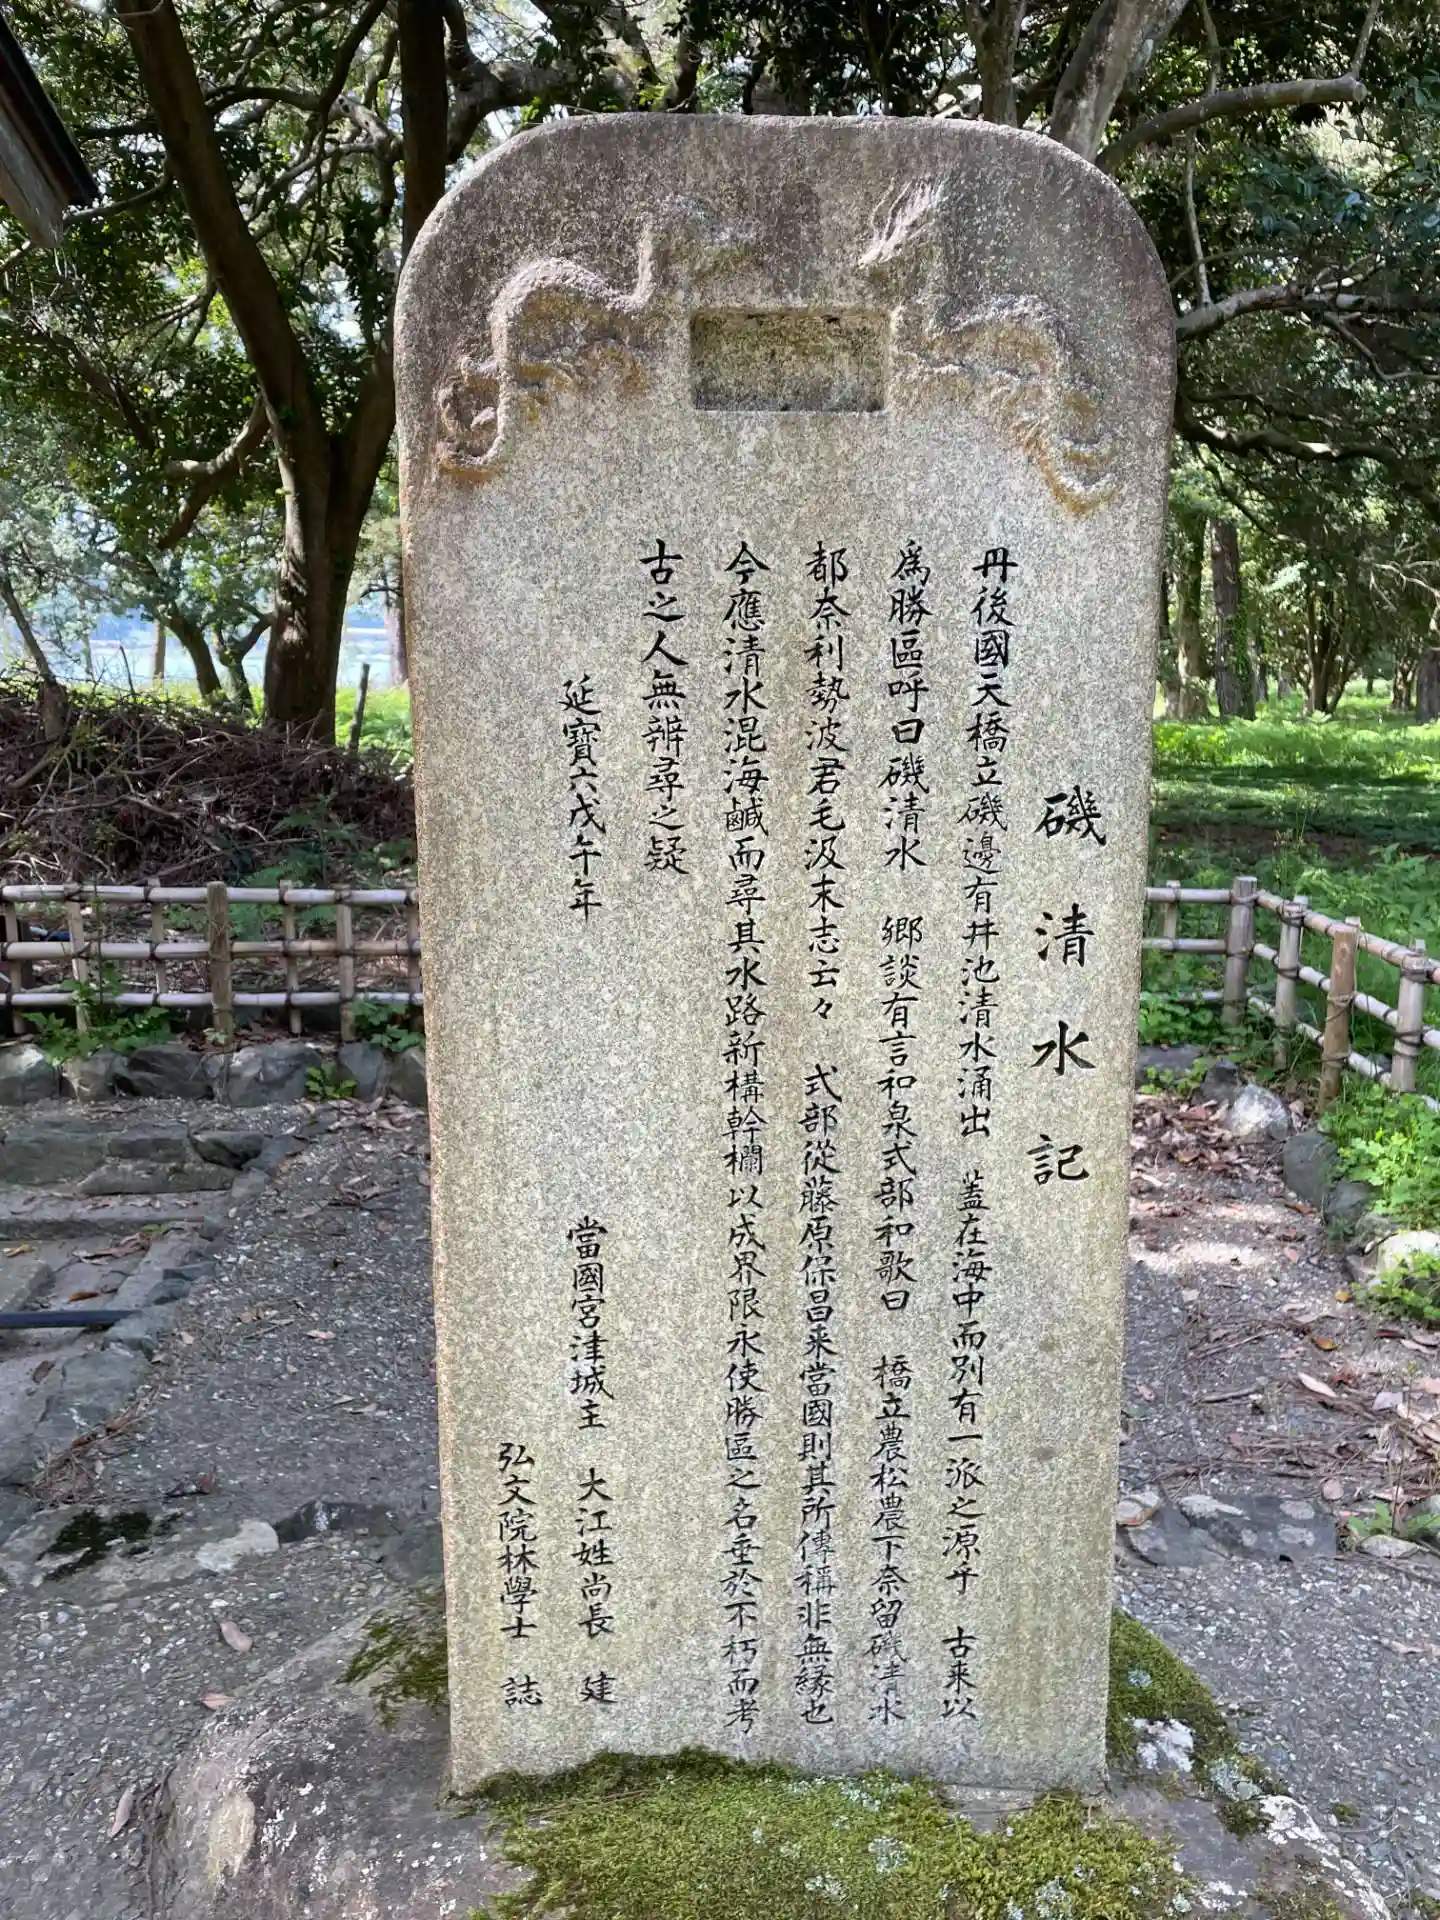 磯清水記
丹後國天橋立磯邊有井池清水涌出 蓋在海中而別有一派之源乎 古来以
為勝區呼曰磯清水 郷談有言和泉式部和歌曰 橋立農松農下奈留磯清水
都奈利勢波君毛汲末志云々 式部從藤原保昌来當國則其所傳稱非無縁也
今應清水混海鹹而尋其水路新構幹欄以成界限永使勝區之名垂於不朽而考
古之人無辨尋之疑
延寶六戊午年
當國宮津城主 大江姓尚長 建
弘文院林學士 誌